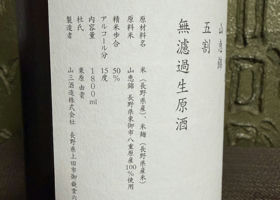 山恵錦
五割
無濾過生原酒
原材料名 米(長野県産)、米麹(長野県産米)
原料米 山恵錦 長野県東御市八重原産100%使用
精米歩合 50%
アルコール分 15度
内容量 1800ml
杜氏 栗原由貴
製造者 山三酒造株式会社 長野県上田市御嶽堂六